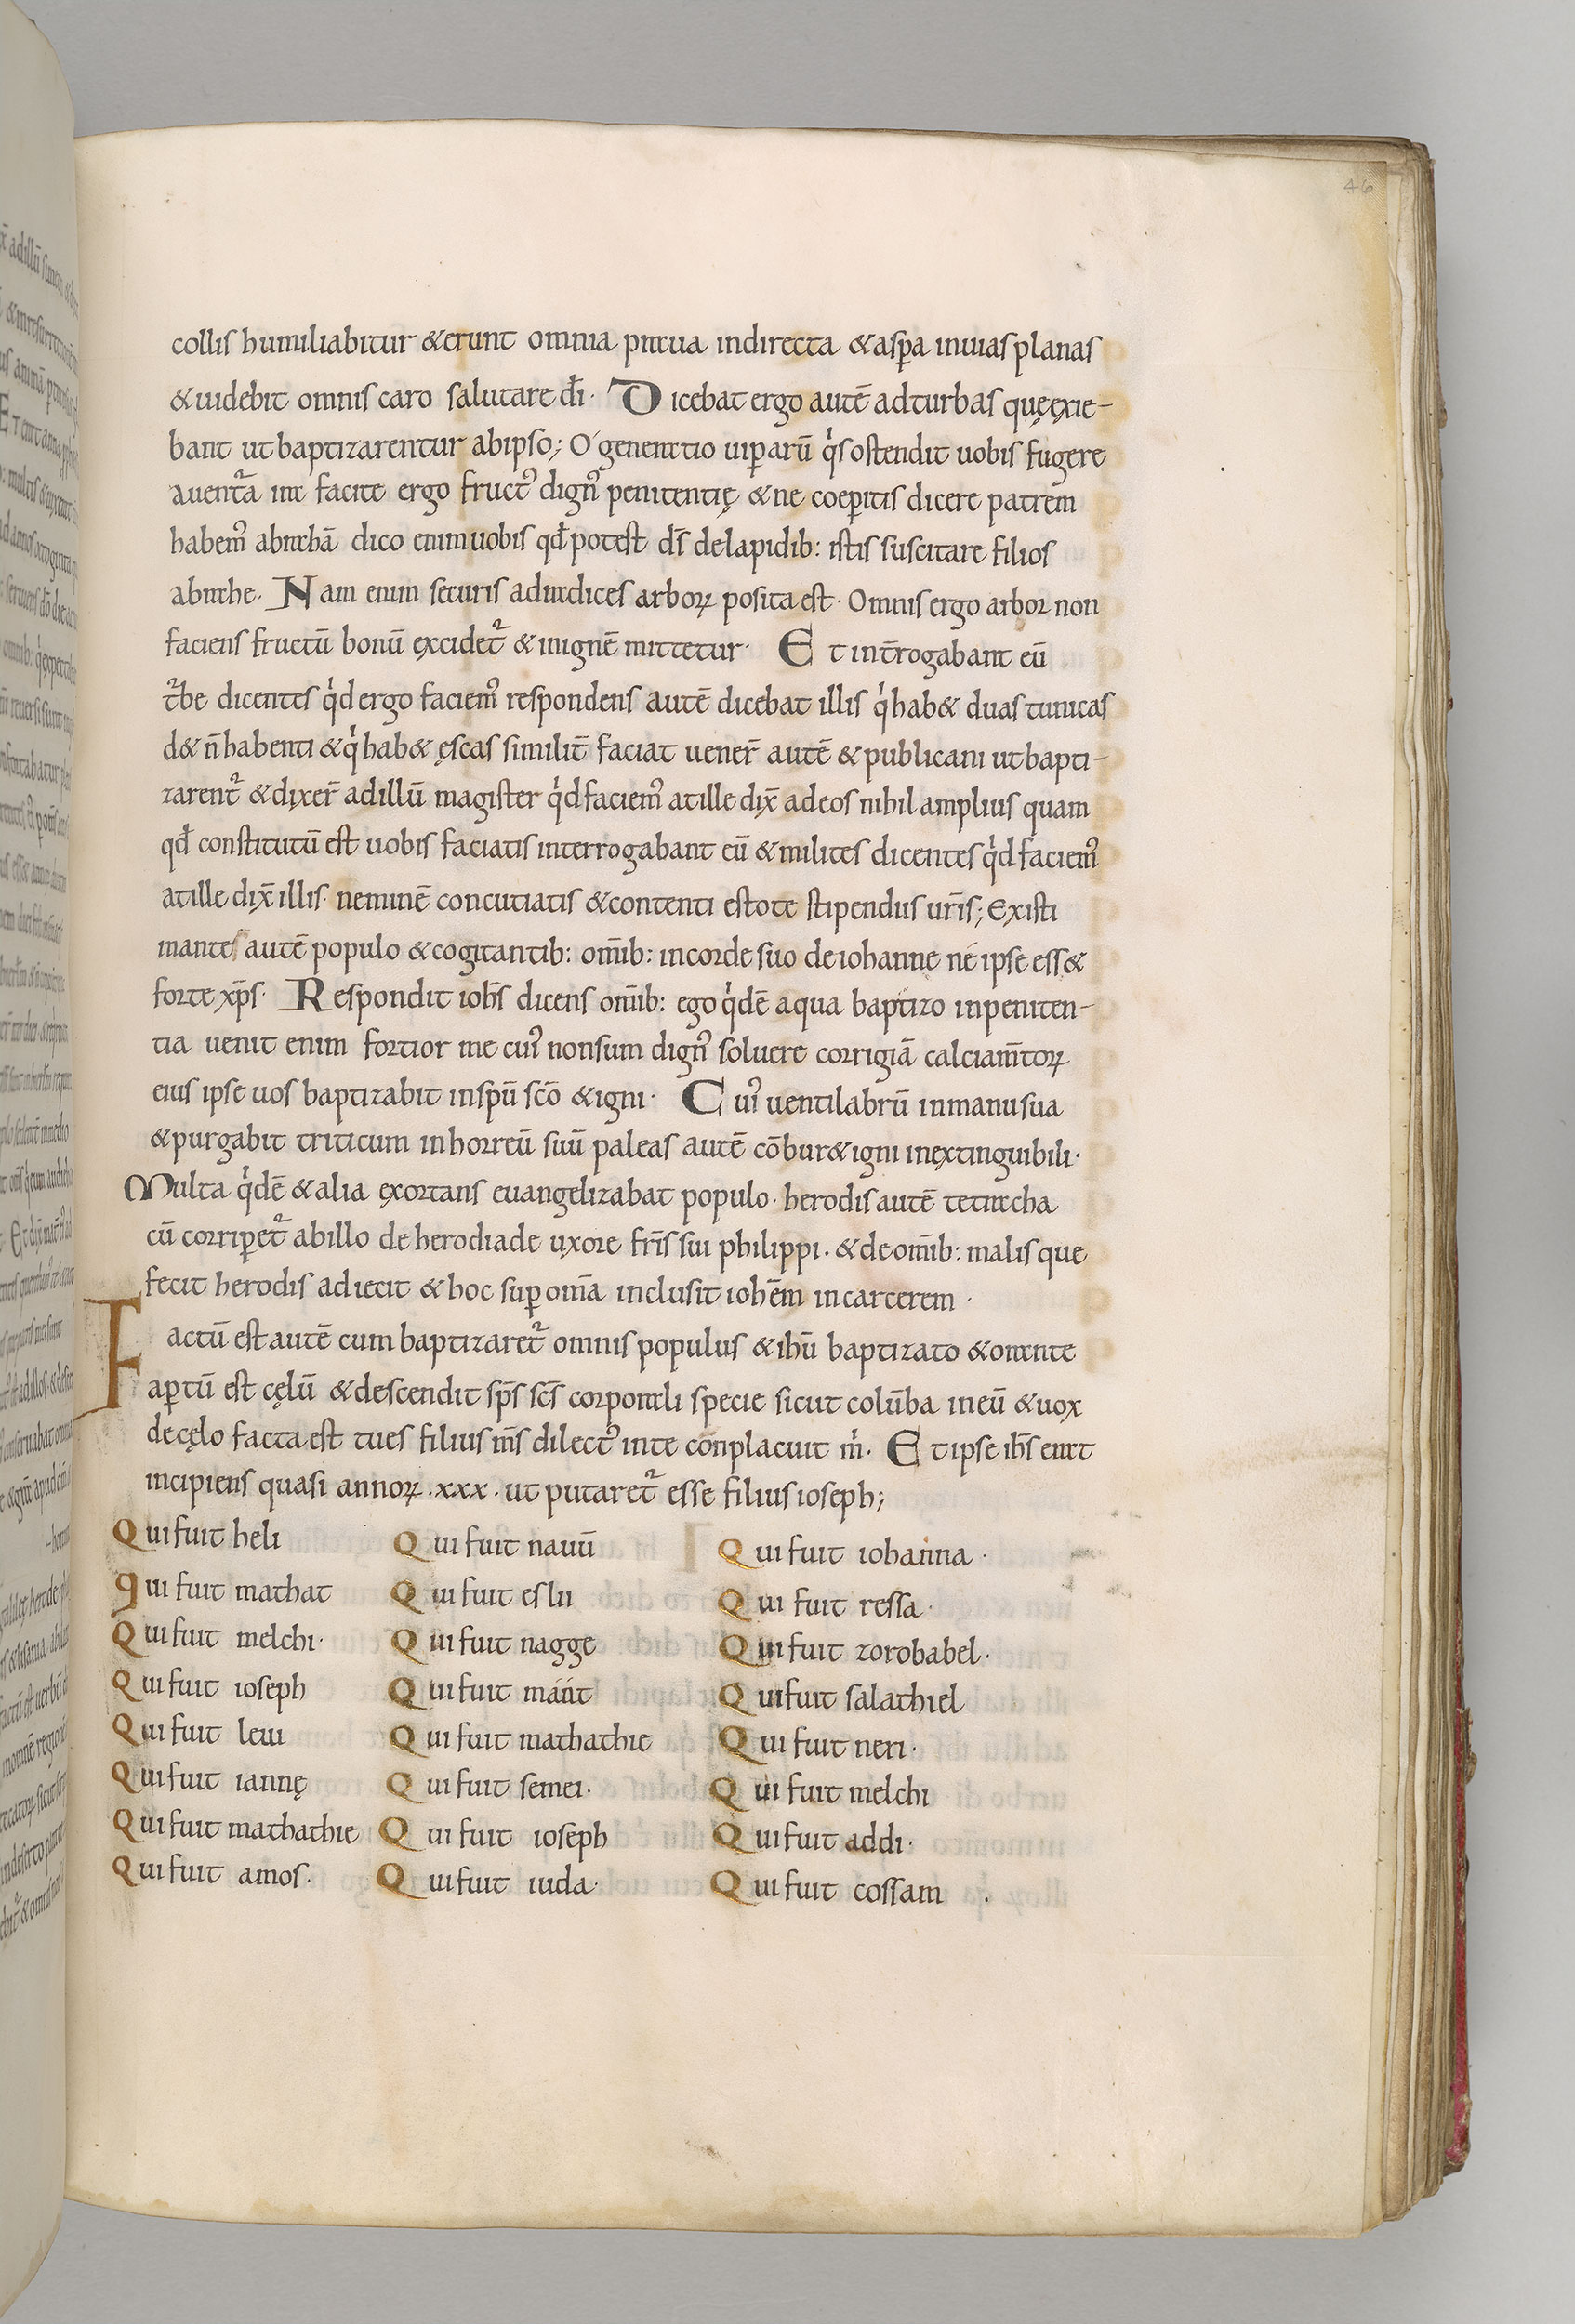 46
collis humiliabitur & erunt omnia praua indirecta & asꝑa inuias planas
& uidebit omnis caro salutare dī· Dicebat ergo autē adturbas quęexie-
bant utbaptizarentur abipso; O generatio uiꝑarū qͥs ostendit uobis fugere
auentᷣa ira facite ergo fructꝰ dignꝰ penitentię & ne coeꝑitis dicere patrem
habemꝰ abrahā dico enim uobis qđ potest ds̄ delapidib: istis suscitare filios
abrahe· Nam enim securis adradices arborꝝ posita est· Omnis ergo arbor non
faciens fructū bonū excidetᷣ & inignē mittetur· Et int̄rogabant eū
tᷣbe dicentes qͥd ergo faciemꝰ respondens autē dicebat illis qͥ hab& duas tunicas
d& n̄ habenti & qͥ hab& ęscas similit̄ faciat uener̄ autē & publicani utbapti-
zarentᷣ & dixer̄ adillū magister qͥd faciemꝰ atille dix̄ adeos nihil amplius quam
qđ constitutū est uobis faciatis interrogabant eū & milites dicentes qͥd faciemꝰ
atille dix̄ illis· neminē concutiatis & contenti estote stipendiis ur̄is; Existi
mantes autē populo & cogitantib: om̄ib: incorde suo deiohanne né ipse ess&
forte xp̄s· Respondit ioh̄s dicens om̄ib: ego qͥdē aqua baptizo inpeniten-
tia uenit enim fortior me cuiꝰ nonsum dignꝰ soluere corrigiā calciam̄torꝝ
eius ipse uos baptizabit inspū scō & igni· Cuiꝰ uentilabrū inmanusua
& purgabit triticum inhorreū suū paleas autē cōbur& igni inextinguibili·
Multa qͥdē & alia exortans euangelizabat populo· herodis autē tetracha
cū corriꝑetᷣ abillo de herodiade uxore fr̄is sui philippi· & deom̄ib: malis que
fecit herodis adiecit & hoc suꝑ om̄a inclusit iohēm incarcerem·
Factū est autē cum baptizaretᷣ omnis populus & ihū baptizato & orante
aꝑtū est cęlū & descendit sp̄s sc̄s corporali specie sicut colūba ineū & uox
decęlo facta est tues filius m̄s dilectꝰ inte conplacuit mͥ· Et ipse ih̄s erat
incipiens quasi annorꝝ ·xxx· ut putaretᷣ esse filius ioseph;
Qui fuit heli
Qui fuit mathat
Qui fuit melchi·
Qui fuit ioseph
Qui fuit leui
Qui fuit iannę
Qui fuit mathathie
Qui fuit amos·
Qui fuit nauū
Qui fuit eslii
Qui fuit nagge
Qui fuit maat
Qui fuit mathathie
Qui fuit semei·
Qui fuit ioseph
Qui fuit iuda·
Qui fuit iohanna·
Qui fuit ressa·
Qui fuit zorobabel·
Qui fuit salathiel
Qui fuit neri·
Qui fuit melchi
Qui fuit addi·
Qui fuit cossam ·